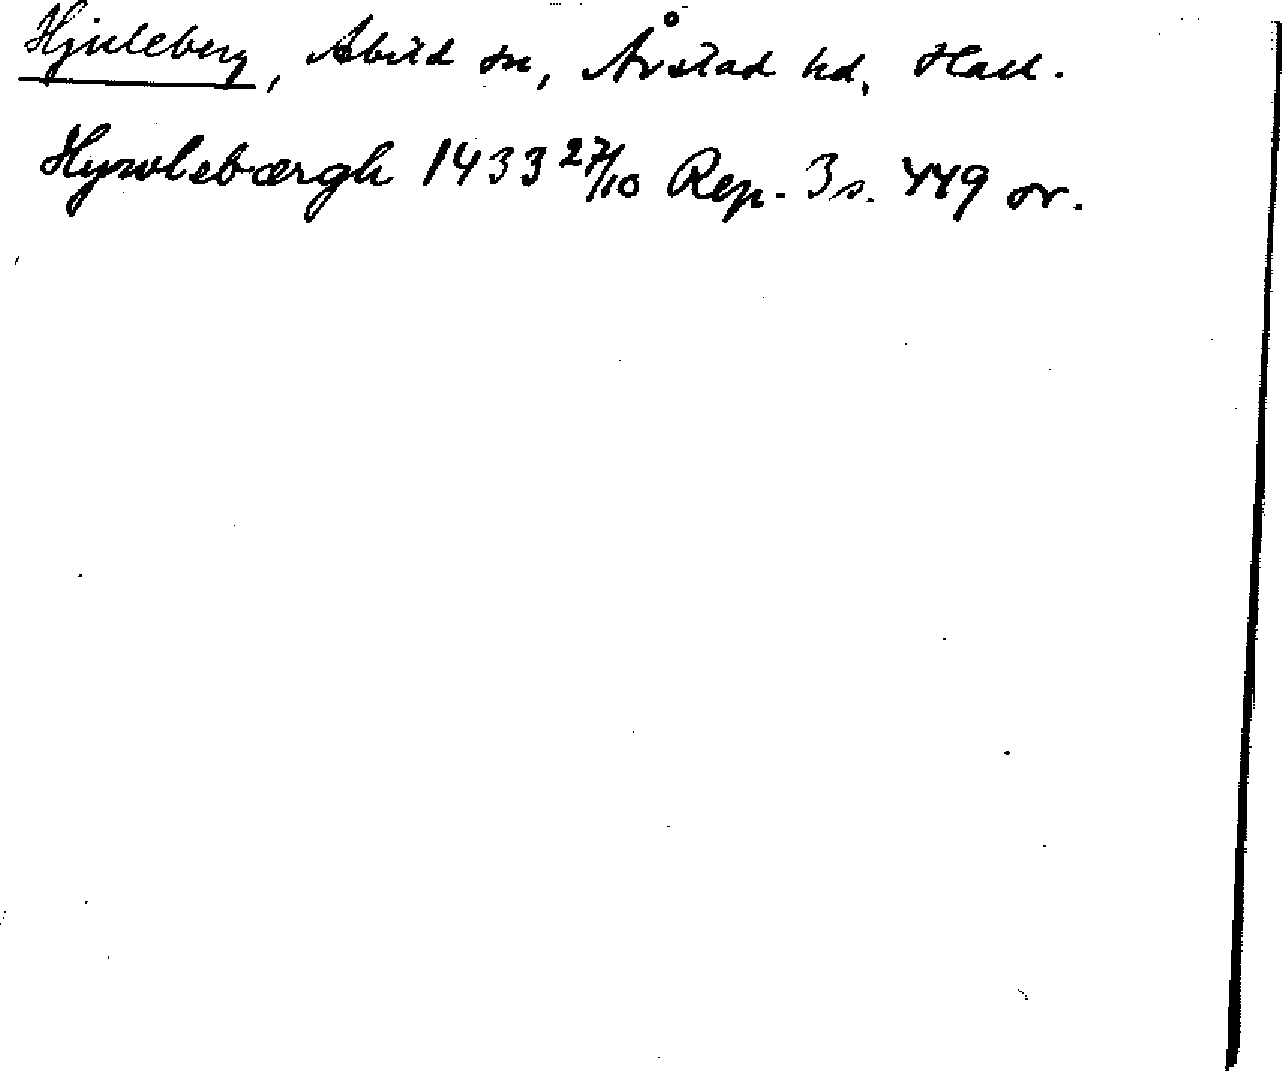 Hjuleberg, Abild sn, Årstad hd, Hall.
Hywlebærgh 1433 27/10 Rep. 3 s. 449 or.